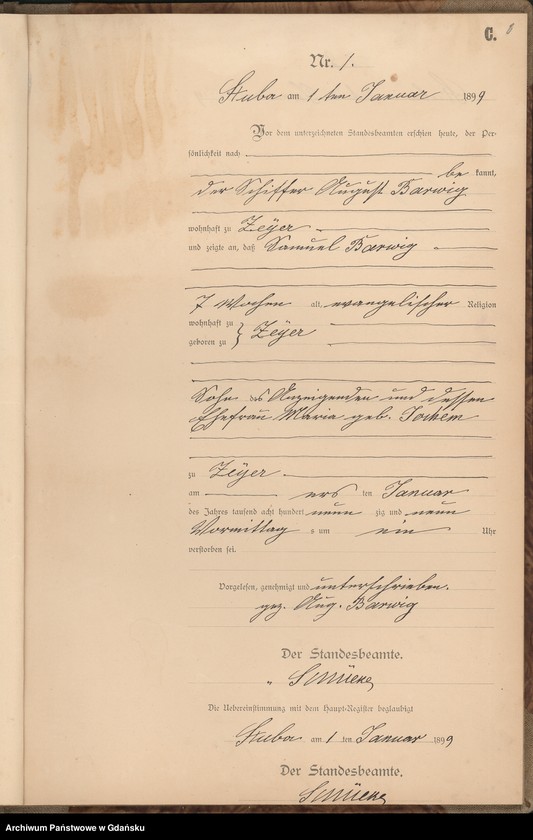 C. 8
Nr. 1.
Stuba am 1 ten Januar 1899
Vor dem unterzeichneten Standesbeamten erschien heute, der Per-
sönlichkeit nach
be kannt,
der Schiffer August Barwig
wohnhaft zu Zeÿer
und zeigte an, daß Samuel Barwig
7 Wochen alt, evangelischer Religion
wohnhaft zu
geboren zu } Zeÿer
Sohn des Anzeigenden und dessen
Ehefrau Maria geb. Jochem
zu Zeÿer
am ers ten Januar
des Jahres tausend acht hundert neun zig und neun
Vormittag s um ein Uhr
verstorben sei.
Vorgelesen, genehmigt und unterschrieben.
gez. Aug. Barwig
Der Standesbeamte.
Die Uebereinstimmung mit dem Haupt-Register beglaubigt
Stuba am 1 ten Januar 1899
Der Standesbeamte.
Archiwum Państwowe w Gdańsku